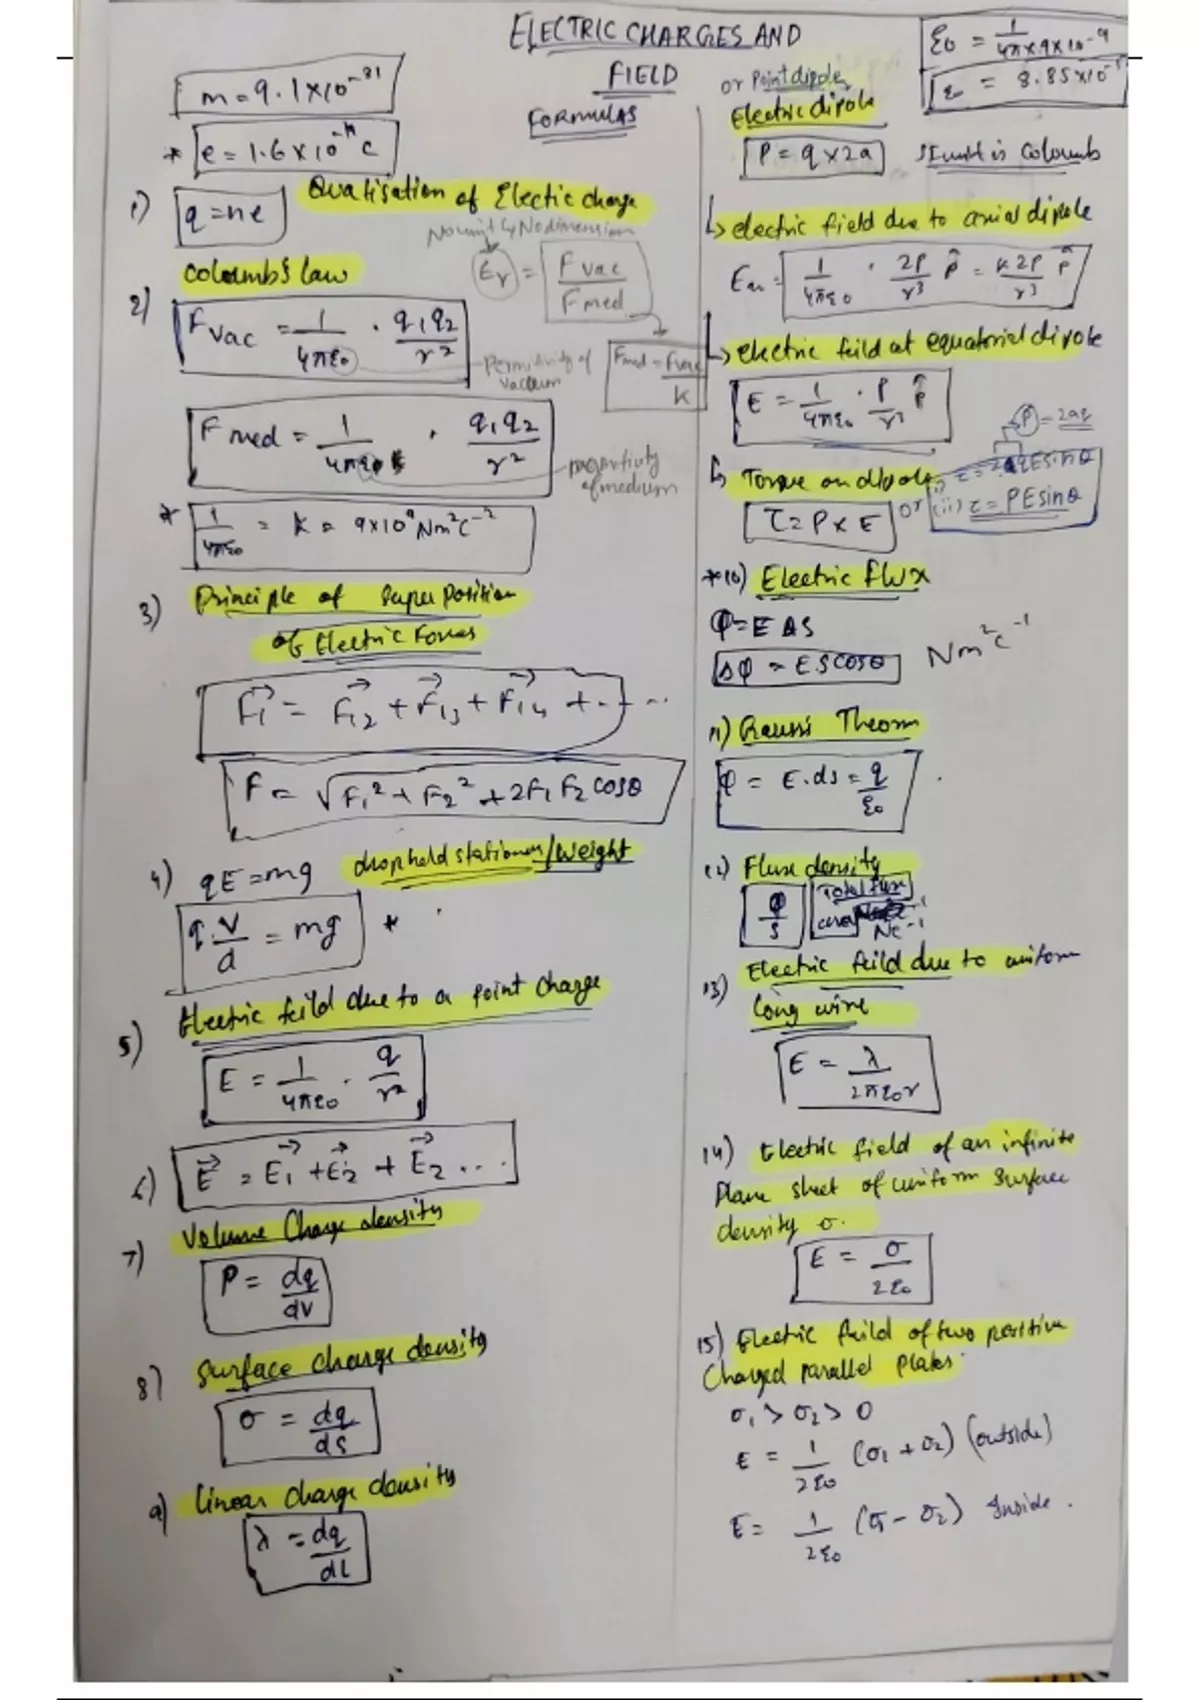 ELECTRIC CHARGES AND
FIELD
FORMULAS
m = 9.1×10⁻³¹
* e = 1.6×10⁻¹⁹ C
1) q = ne
Quatisation of Electic charge
No unit & No dimension
Er = Fvac / Fmed
Coloumb's law
2) Fvac = 1/4πε₀ · q₁q₂/r²
Permitivity of
vaccum
Fmed = Fvac/K
Fmed = 1/4πε₀K · q₁q₂/r²
of medium
* 1/4πε₀ = K = 9×10⁹ Nm²C⁻²
3) Principle of Super Position
of Electric Forces
F₁ = F₁₂ + F₁₃ + F₁₄ + ...
F = √F₁² + F₂² + 2F₁F₂ cosθ
4) qE = mg drop held stationary/Weight
q.V/d = mg *
5) Electric feild due to a point charge
E = 1/4πε₀ · q/r²
6) E = E₁ + E₂ + E₂ ...
7) Volume Charge density
ρ = dq/dv
8) Surface charge density
σ = dq/ds
9) linear charge density
λ = dq/dl
ε₀ = 1/4π×9×10⁻⁹
ε₀ = 8.85×10
or Point dipole
Electric dipole
P = q×2a SI unit is Coloumb
↳ electric field due to axial dipole
Eax = 1/4πε₀ · 2P/r³ p̂ = K2P/r³ p̂
↳ electric feild at equatorial dipole
E = 1/4πε₀ · P/r³ p̂
P = 2aq
↳ Torque on dipole
i) τ = 2aqE sinθ
τ = P×E or (ii) τ = PE sinθ
*10) Electric flux
φ = E ΔS
Δφ = E.S cosθ Nm²C⁻¹
11) Gauss's Theorm
φ = E.ds = q/ε₀
12) Flux density
φ/s Total flux / area
NC⁻¹
13) Electric feild due to uniform
long wire
E = λ/2πε₀r
14) Electric field of an infinite
Plane sheet of uniform surface
density σ.
E = σ/2ε₀
15) Electric feild of two positive
Charged parallel plates
σ₁ > σ₂ > 0
E = 1/2ε₀ (σ₁ + σ₂) (outside)
E = 1/2ε₀ (σ₁ - σ₂) Inside.